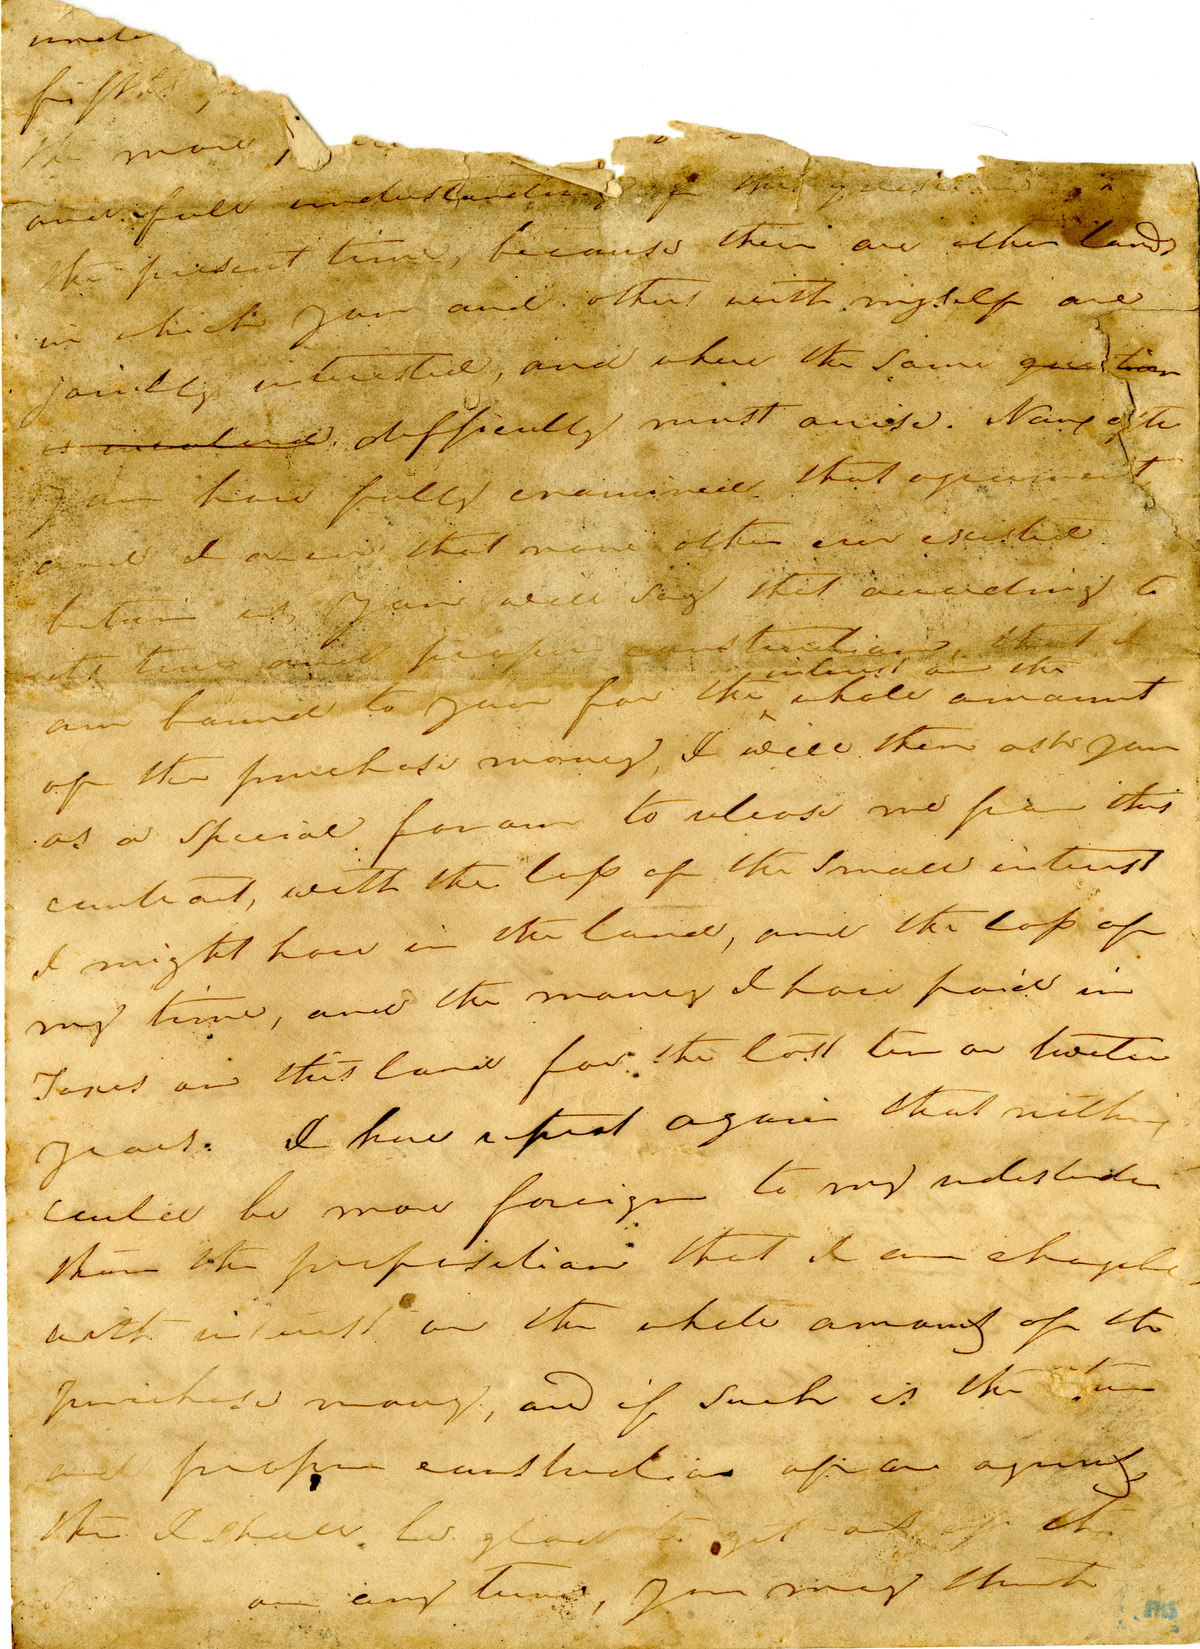 unde
fifths
the more
and full understanding of this
the present time, because there are other lands
in which you and others with myself are
jointly interested, and where the same question
is involved difficulty must arise. Now after
you have fully examined that agreement
and I aver that none other ever existed
between us, you will say that according to
its true and proper construction, that I
interest on the
am bound to you for the whole amount
of the purchase money, I will then ask you
as a special favour to release me from this
contract, with the loss of the small interest
I might have in the land, and the loss of
my time, and the money I have paid in
Taxes on this land for the last ten or twelve
years. I here repeat again that nothing
could be more foreign to my
than the proposition that I am
with interest on the whole amount of the
purchase money, and if such is the true
and proper construction of our
then I shall be glad to get out of
on any terms, you may think